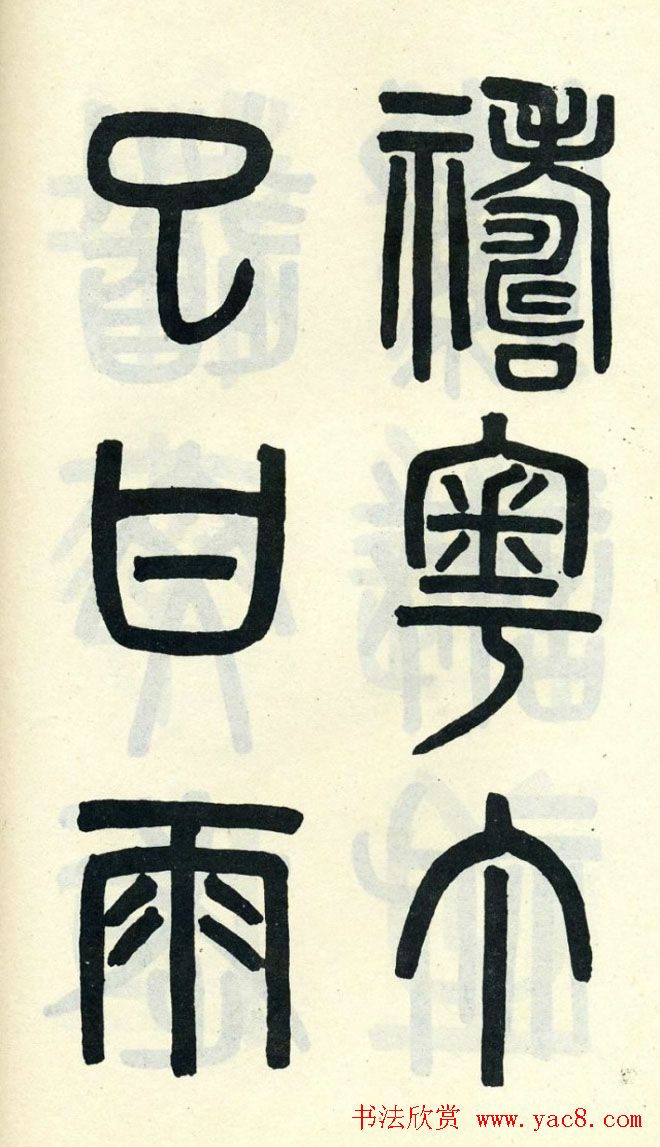 禱粵
已甘雨
书法欣赏 www.yac8.com